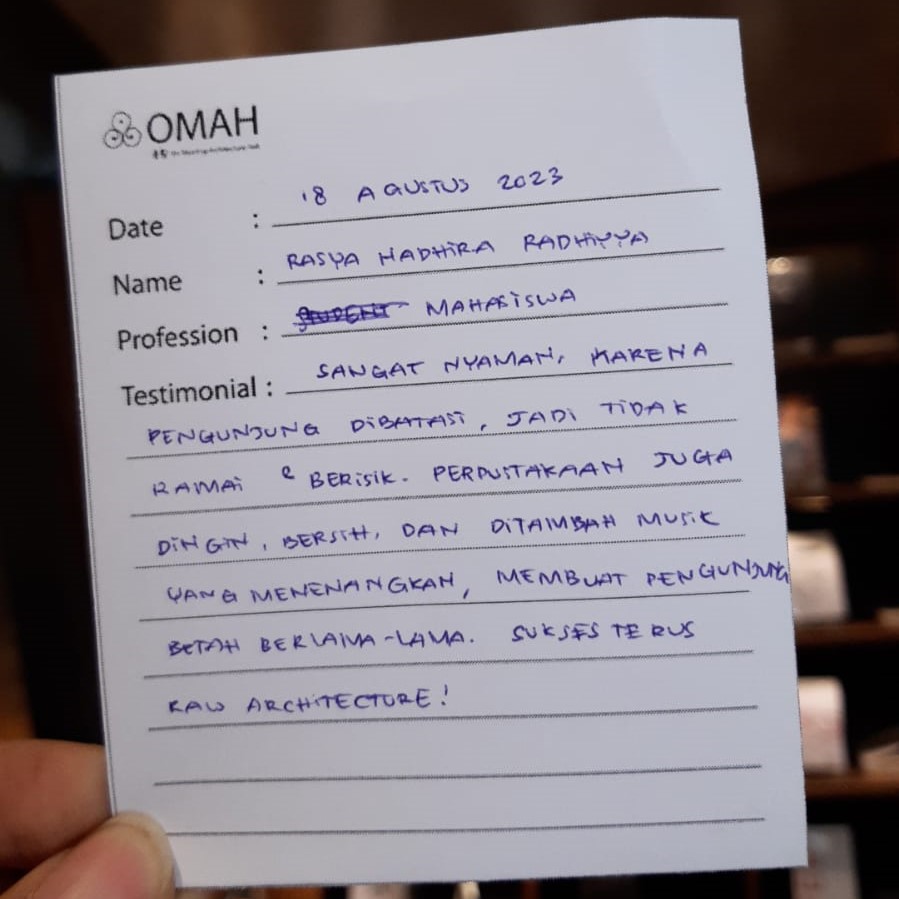 OMAH
Date : 18 AGUSTUS 2023
Name : RASYA NADHIRA RADHIYYA
Profession : STUDENT MAHASISWA
Testimonial : SANGAT NYAMAN, KARENA
PENGUNJUNG DIBATASI, JADI TIDAK
RAMAI & BERISIK. PERPUSTAKAAN JUGA
DINGIN, BERSIH, DAN DITAMBAH MUSIK
YANG MENENANGKAN, MEMBUAT PENGUNJUNG
BETAH BERLAMA-LAMA. SUKSES TERUS
RAW ARCHITECTURE!